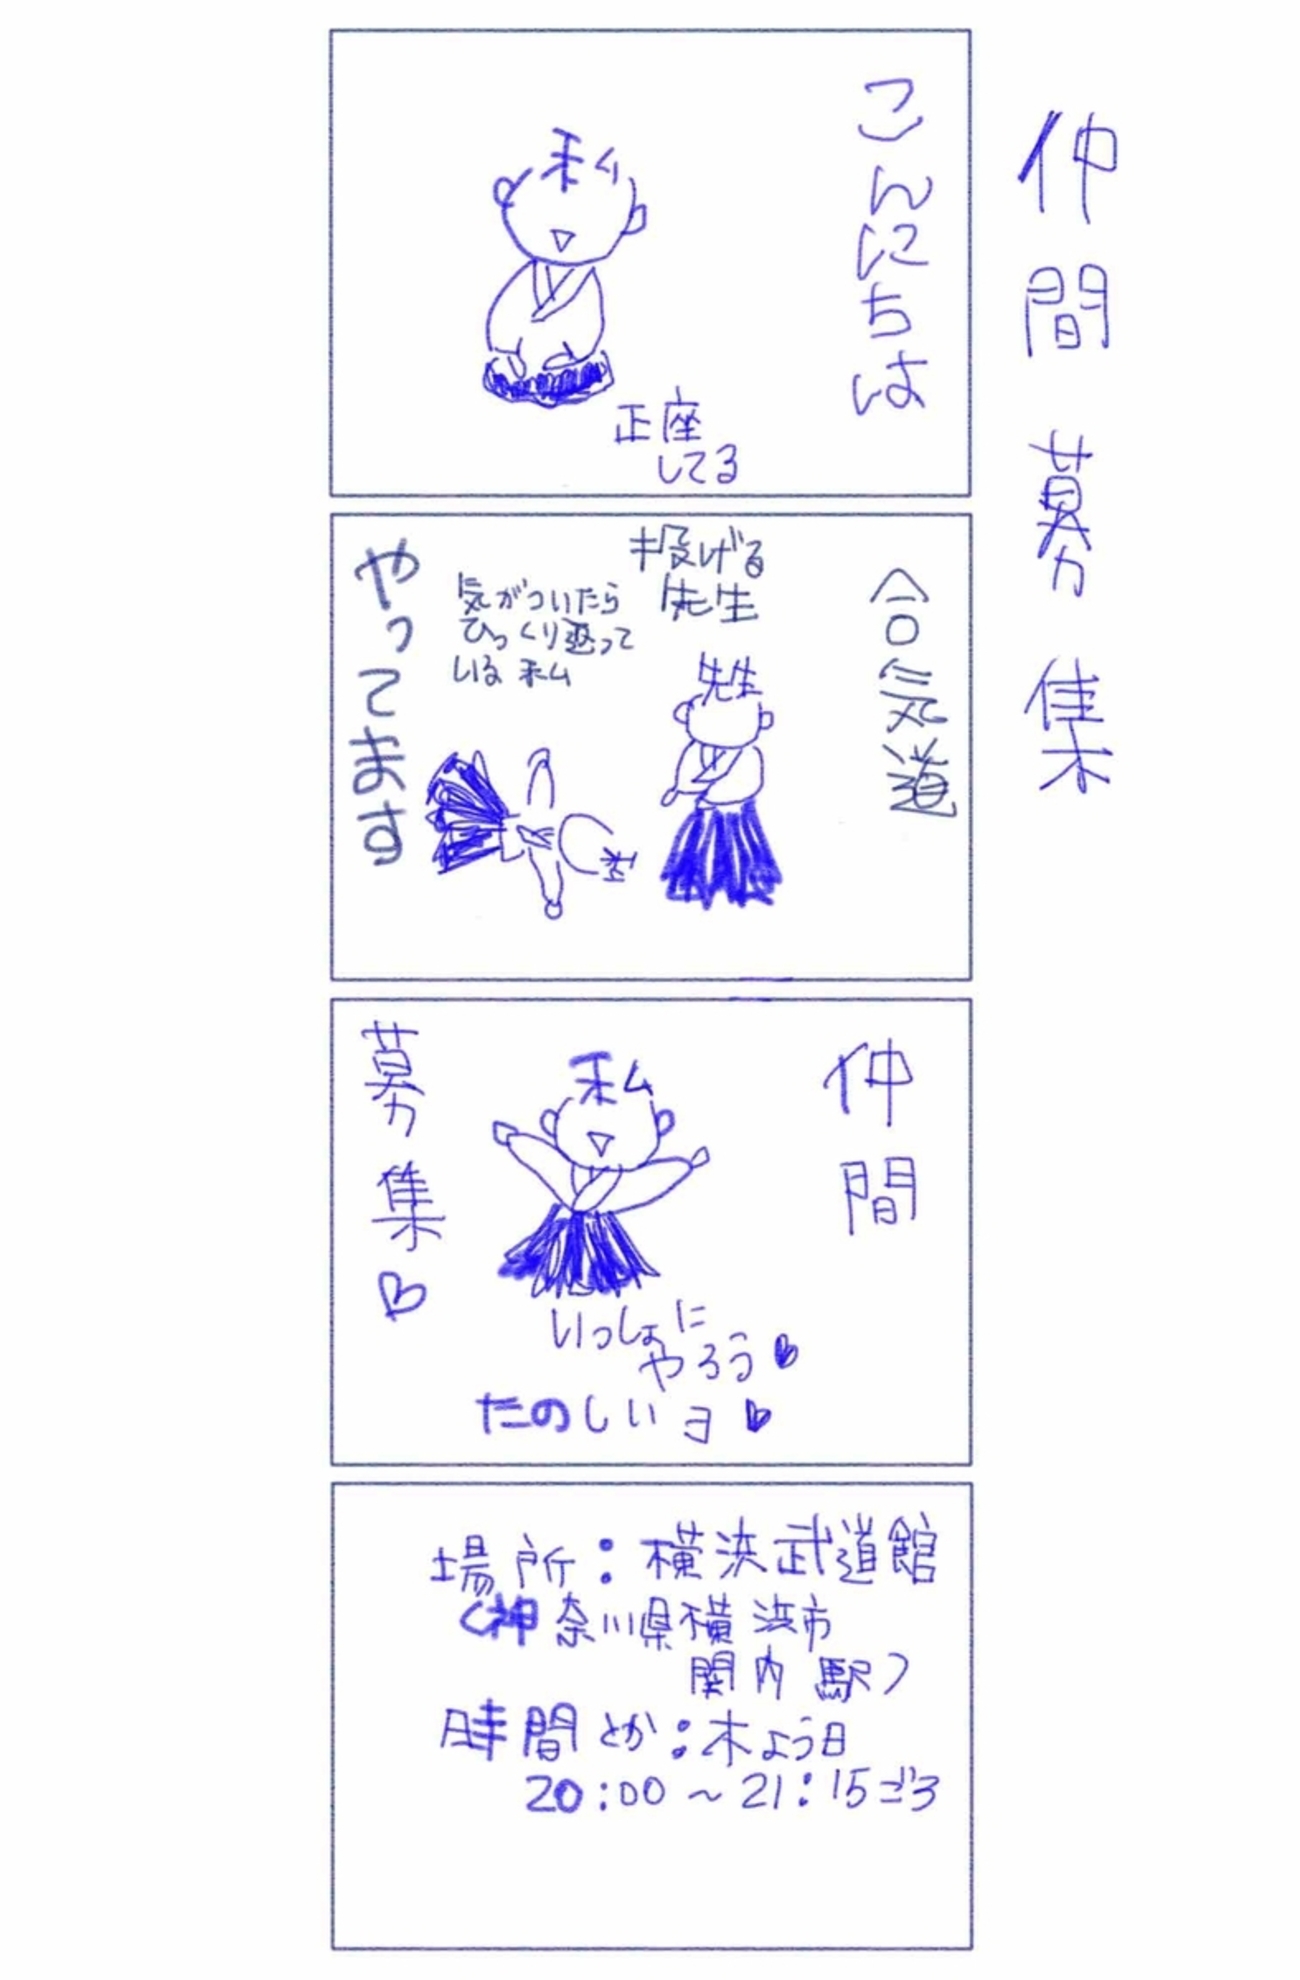 仲間募集
こんにちは
私
正座
してる
合気道
投げる
先生
先生
気がついたら
ひっくり返って
いる私
私
やってます
仲間
私
募集♡
いっしょに
やろう♥
たのしいヨ♥
場所：横浜武道館
（神奈川県横浜市
関内駅）
時間とか：木よう日
20:00～21:15ごろ